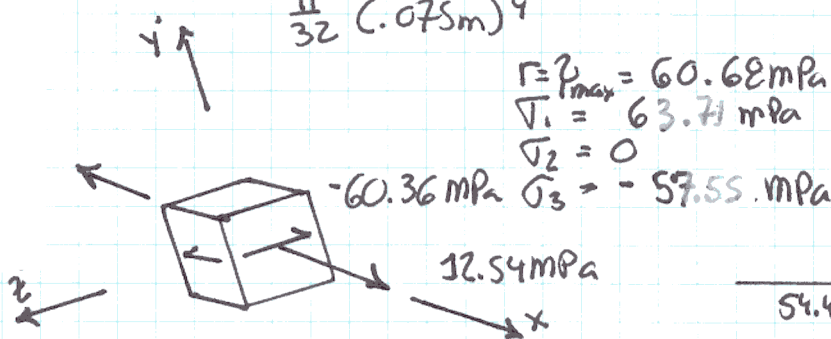 π/32 (.075m)⁴
y
r = τmax = 60.68 mPa
σ1 = 63.71 mPa
σ2 = 0
-60.36 mPa σ3 = -57.55 mPa
12.54 mPa
z
x
54.4